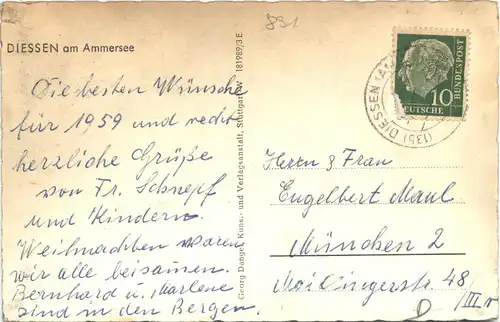 891
DIESSEN am Ammersee
Die besten Wünsche
für 1959 und recht
herzliche Grüße
von Fr. Schnepf
und Kindern.
Weihnachten waren
wir alle beisamen.
Bernhard u. Marlene
sind in den Bergen.
Georg Dangel, Kuns- und Verlagsanstalt, Stuttgart-W 181989/3 E
DEUTSCHE BUNDESPOST
10
DIESSEN (AM
Herrn & Frau
Engelbert Maul
München 2
Maillingerstr. 48/
III r